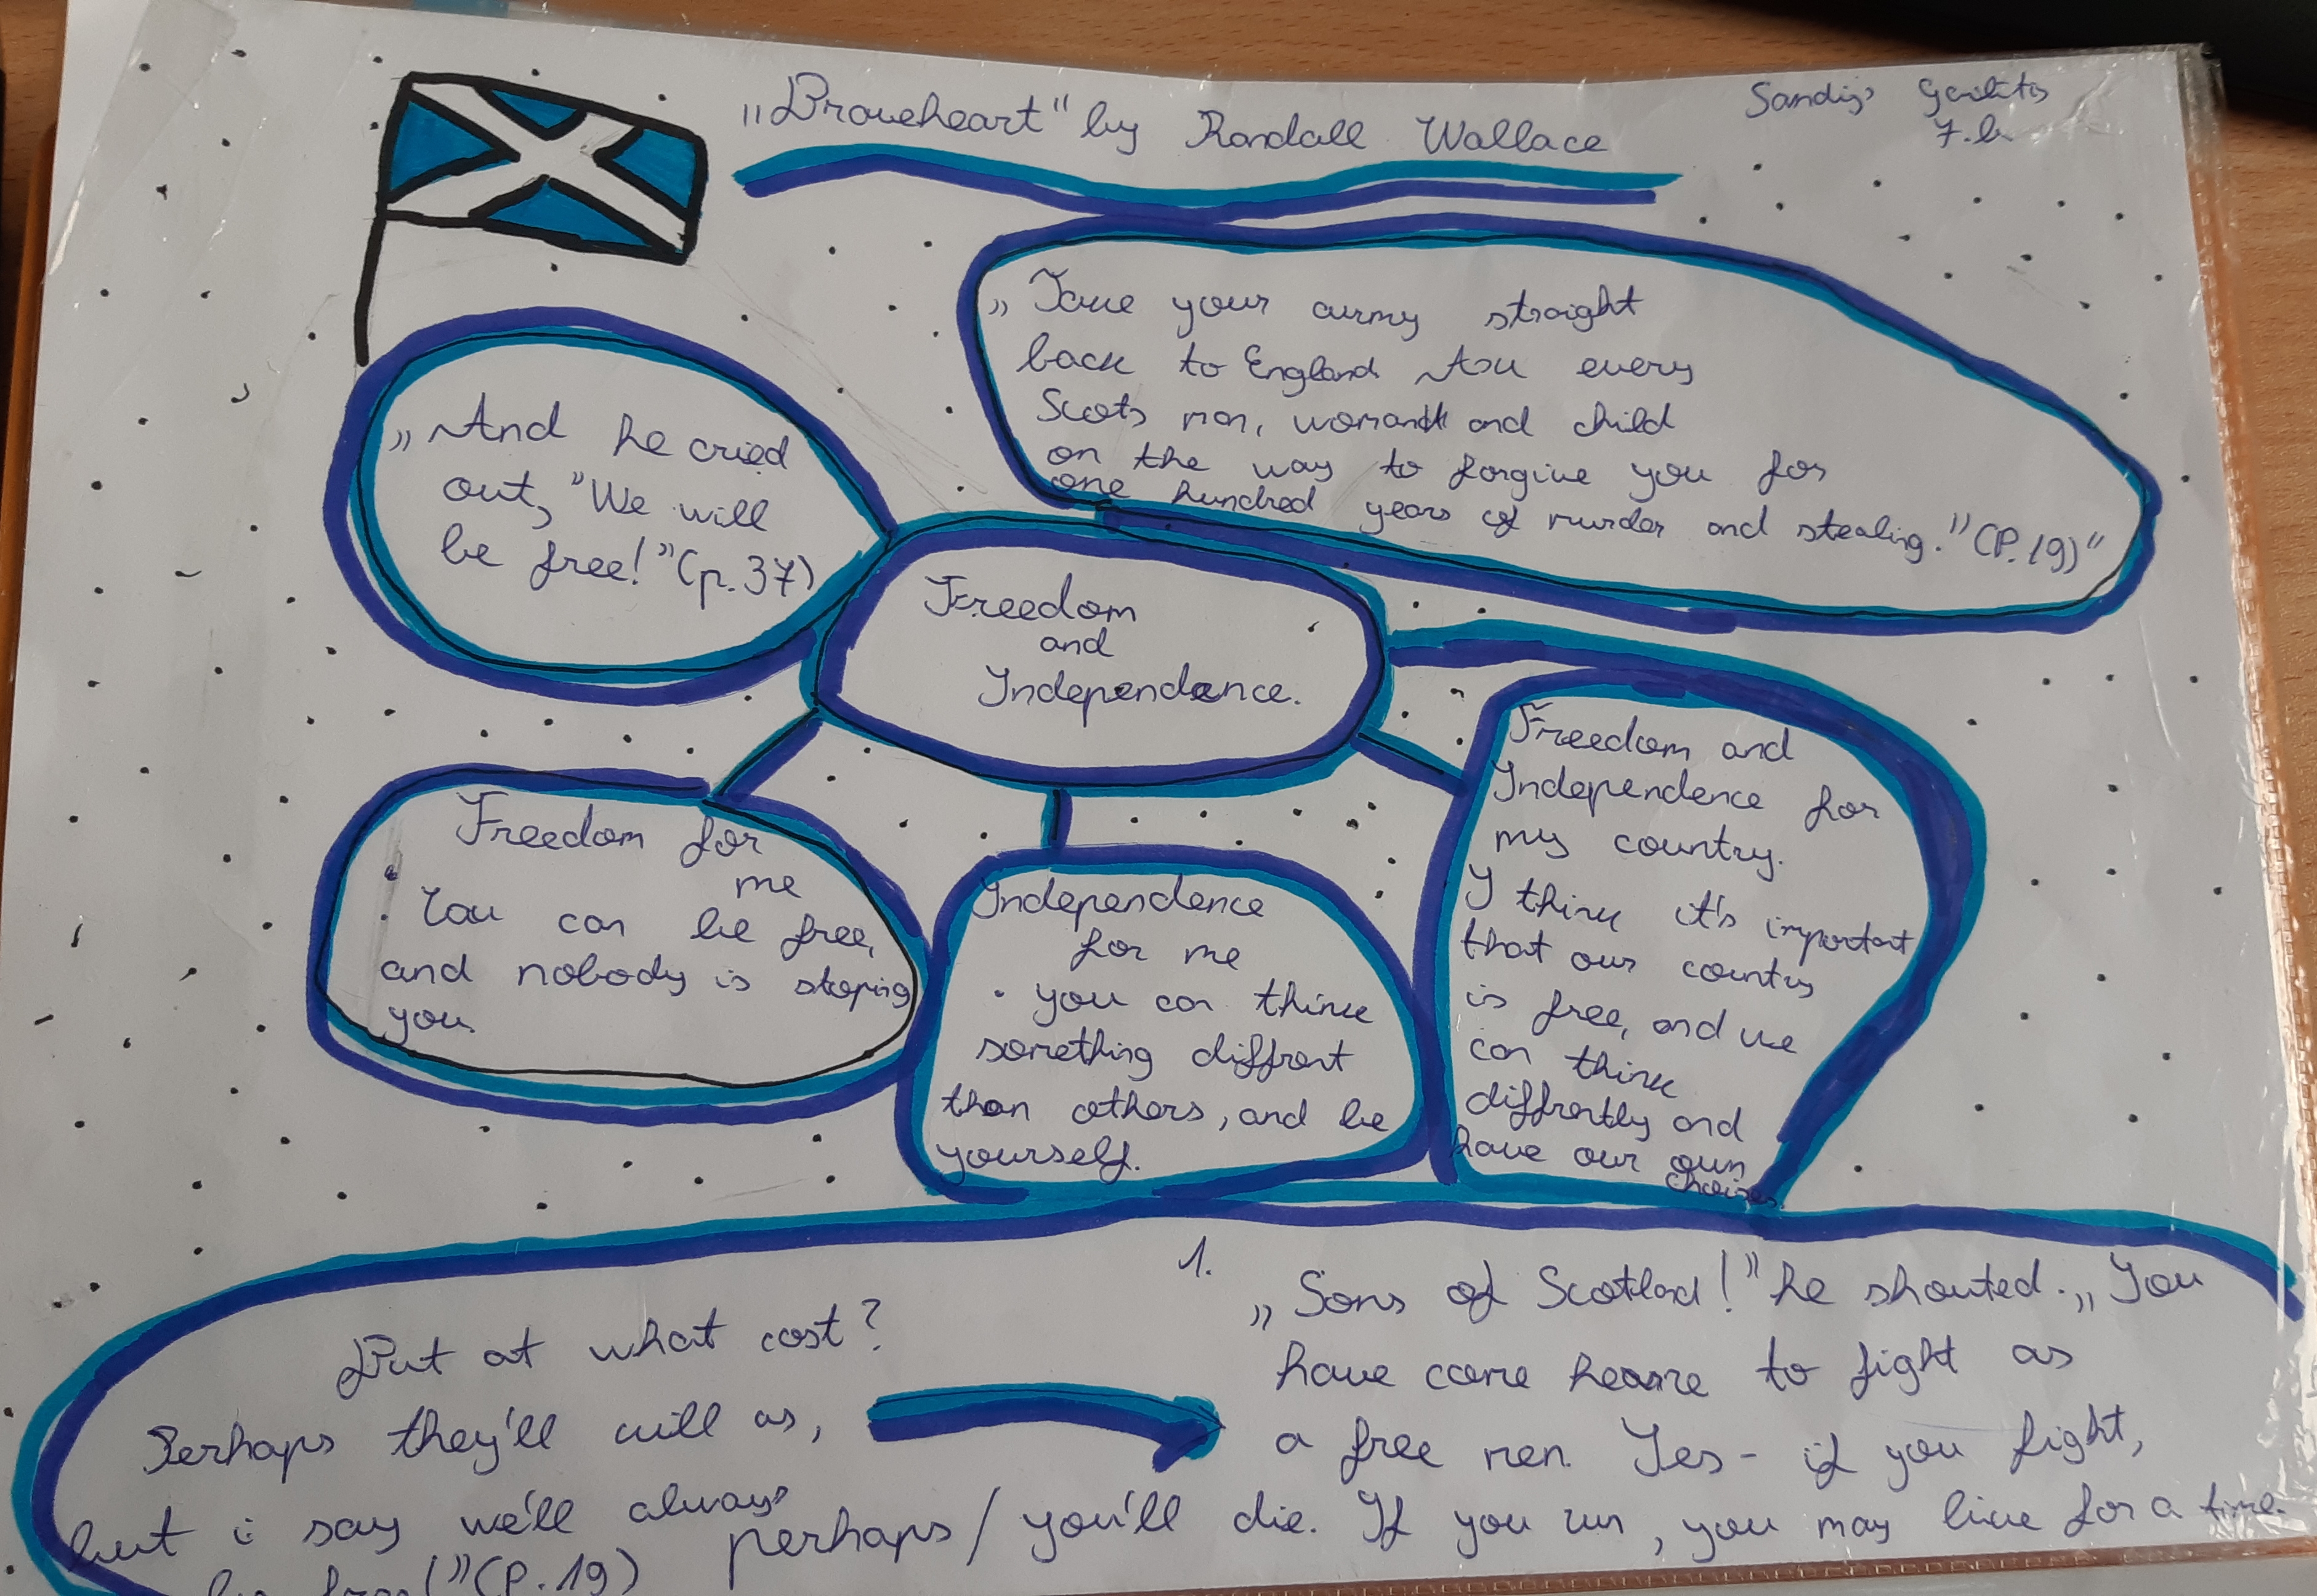 „Braveheart" by Randall Wallace
Sandijs
7.b
„Take your army straight
back to England. Ask every
Scots man, woman and child
on the way to forgive you for
one hundred years of murder and stealing." (P.19)"
„And he cried
out, "We will
be free!" (p.37)
Freedom
and
Independence.
Freedom for
me
· You can be free,
and nobody is stoping
you.
Independence
for me
· you can think
something diffrent
than others, and be
yourself.
Freedom and
Independence for
my country.
I think it's important
that our country
is free, and we
can think
diffrently and
have our own
choises.
But at what cost?
Perhaps they'll kill as,
but i say we'll always
be free!" (P.19)
1.
„Sons of Scotlad!" he shouted. „You
have come to fight as
a free men. Yes - if you fight,
perhaps / you'll die. If you run, you may live for a time.